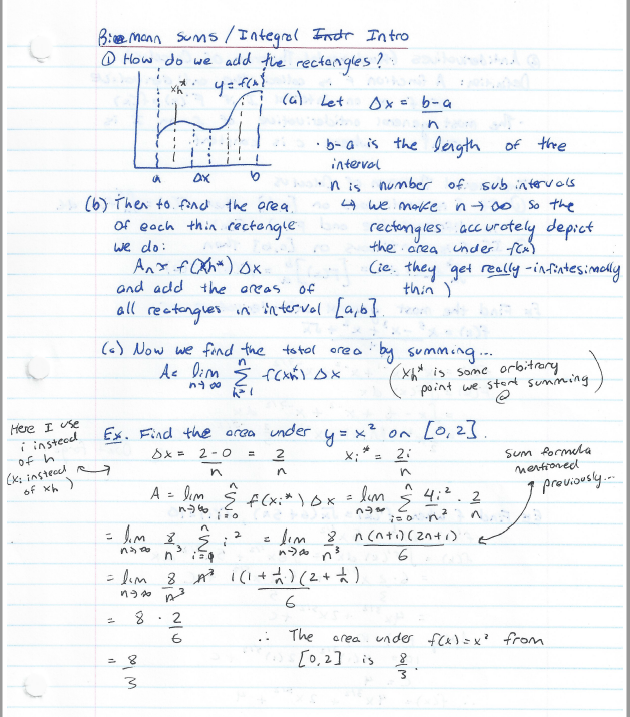 Riemann sums / Integral Intro
① How do we add the rectangles?
xh*
y = f(x)
a Δx b
(a) Let Δx = b-a / n
· b-a is the length of the
interval
· n is number of sub intervals
↳ we make n→∞ so the
rectangles accurately depict
the area under f(x)
(ie. they get really-infintesimally
thin)
(b) Then to find the area
of each thin rectangle
we do:
An ≈ f(xh*) Δx
and add the areas of
all rectangles in interval [a,b].
(c) Now we find the total area by summing...
A = lim n→∞ Σ h=1 n f(xh*) Δx
(xh* is some arbitrary
point we start summing
@)
Here I use
i instead
of h
(xi instead
of xh)
Ex. Find the area under y = x² on [0,2].
Δx = 2-0 / n = 2 / n xi* = 2i / n
sum formula
mentioned
previously...
A = lim n→∞ Σ i=0 n f(xi*) Δx = lim n→∞ Σ i=0 n 4i² / n² · 2 / n
= lim n→∞ 8 / n³ Σ n i² = lim n→∞ 8 / n³ n(n+1)(2n+1) / 6
= lim n→∞ 8 / n³ n³ 1(1 + 1/n)(2 + 1/n) / 6
= 8 · 2 / 6
∴ The area under f(x) = x² from
= 8 / 3
[0,2] is 8/3.